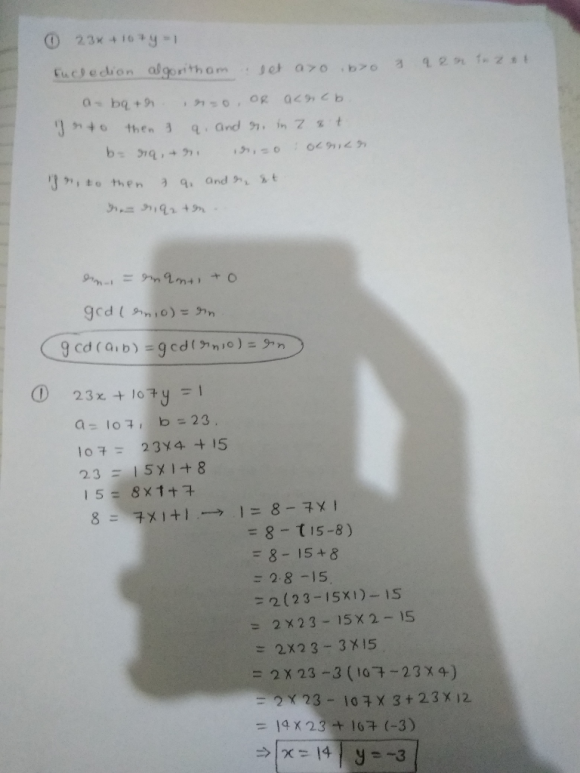 ① 23x + 107y = 1
Eucledian algoritham : let a>0, b>0 ∃ q & r in Z s t
a = bq + r , r = 0, OR 0<r<b.
If r ≠ 0 then ∃ q₁ and r₁ in Z s t
b = rq₁ + r₁ , r₁ = 0 : 0<r₁<r
If r₁ ≠ 0 then ∃ q₂ and r₂ s t
r = r₁q₂ + r₂ .
rₙ₋₁ = rₙqₙ₊₁ + 0
gcd(rₙ,0) = rₙ
gcd(a,b) = gcd(rₙ,0) = rₙ
① 23x + 107y = 1
a = 107, b = 23.
107 = 23×4 + 15
23 = 15×1 + 8
15 = 8×1+7
8 = 7×1+1 → 1 = 8 - 7×1
= 8 - (15-8)
= 8 - 15 + 8
= 2·8 - 15
= 2(23 - 15×1) - 15
= 2×23 - 15×2 - 15
= 2×23 - 3×15
= 2×23 - 3(107 - 23×4)
= 2×23 - 107×3 + 23×12
= 14×23 + 107(-3)
⇒ x = 14 | y = -3